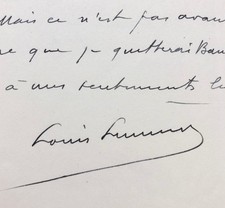 Mais ce n'est pas avan
que je quitterai Ban
à mes sentiments le
Louis